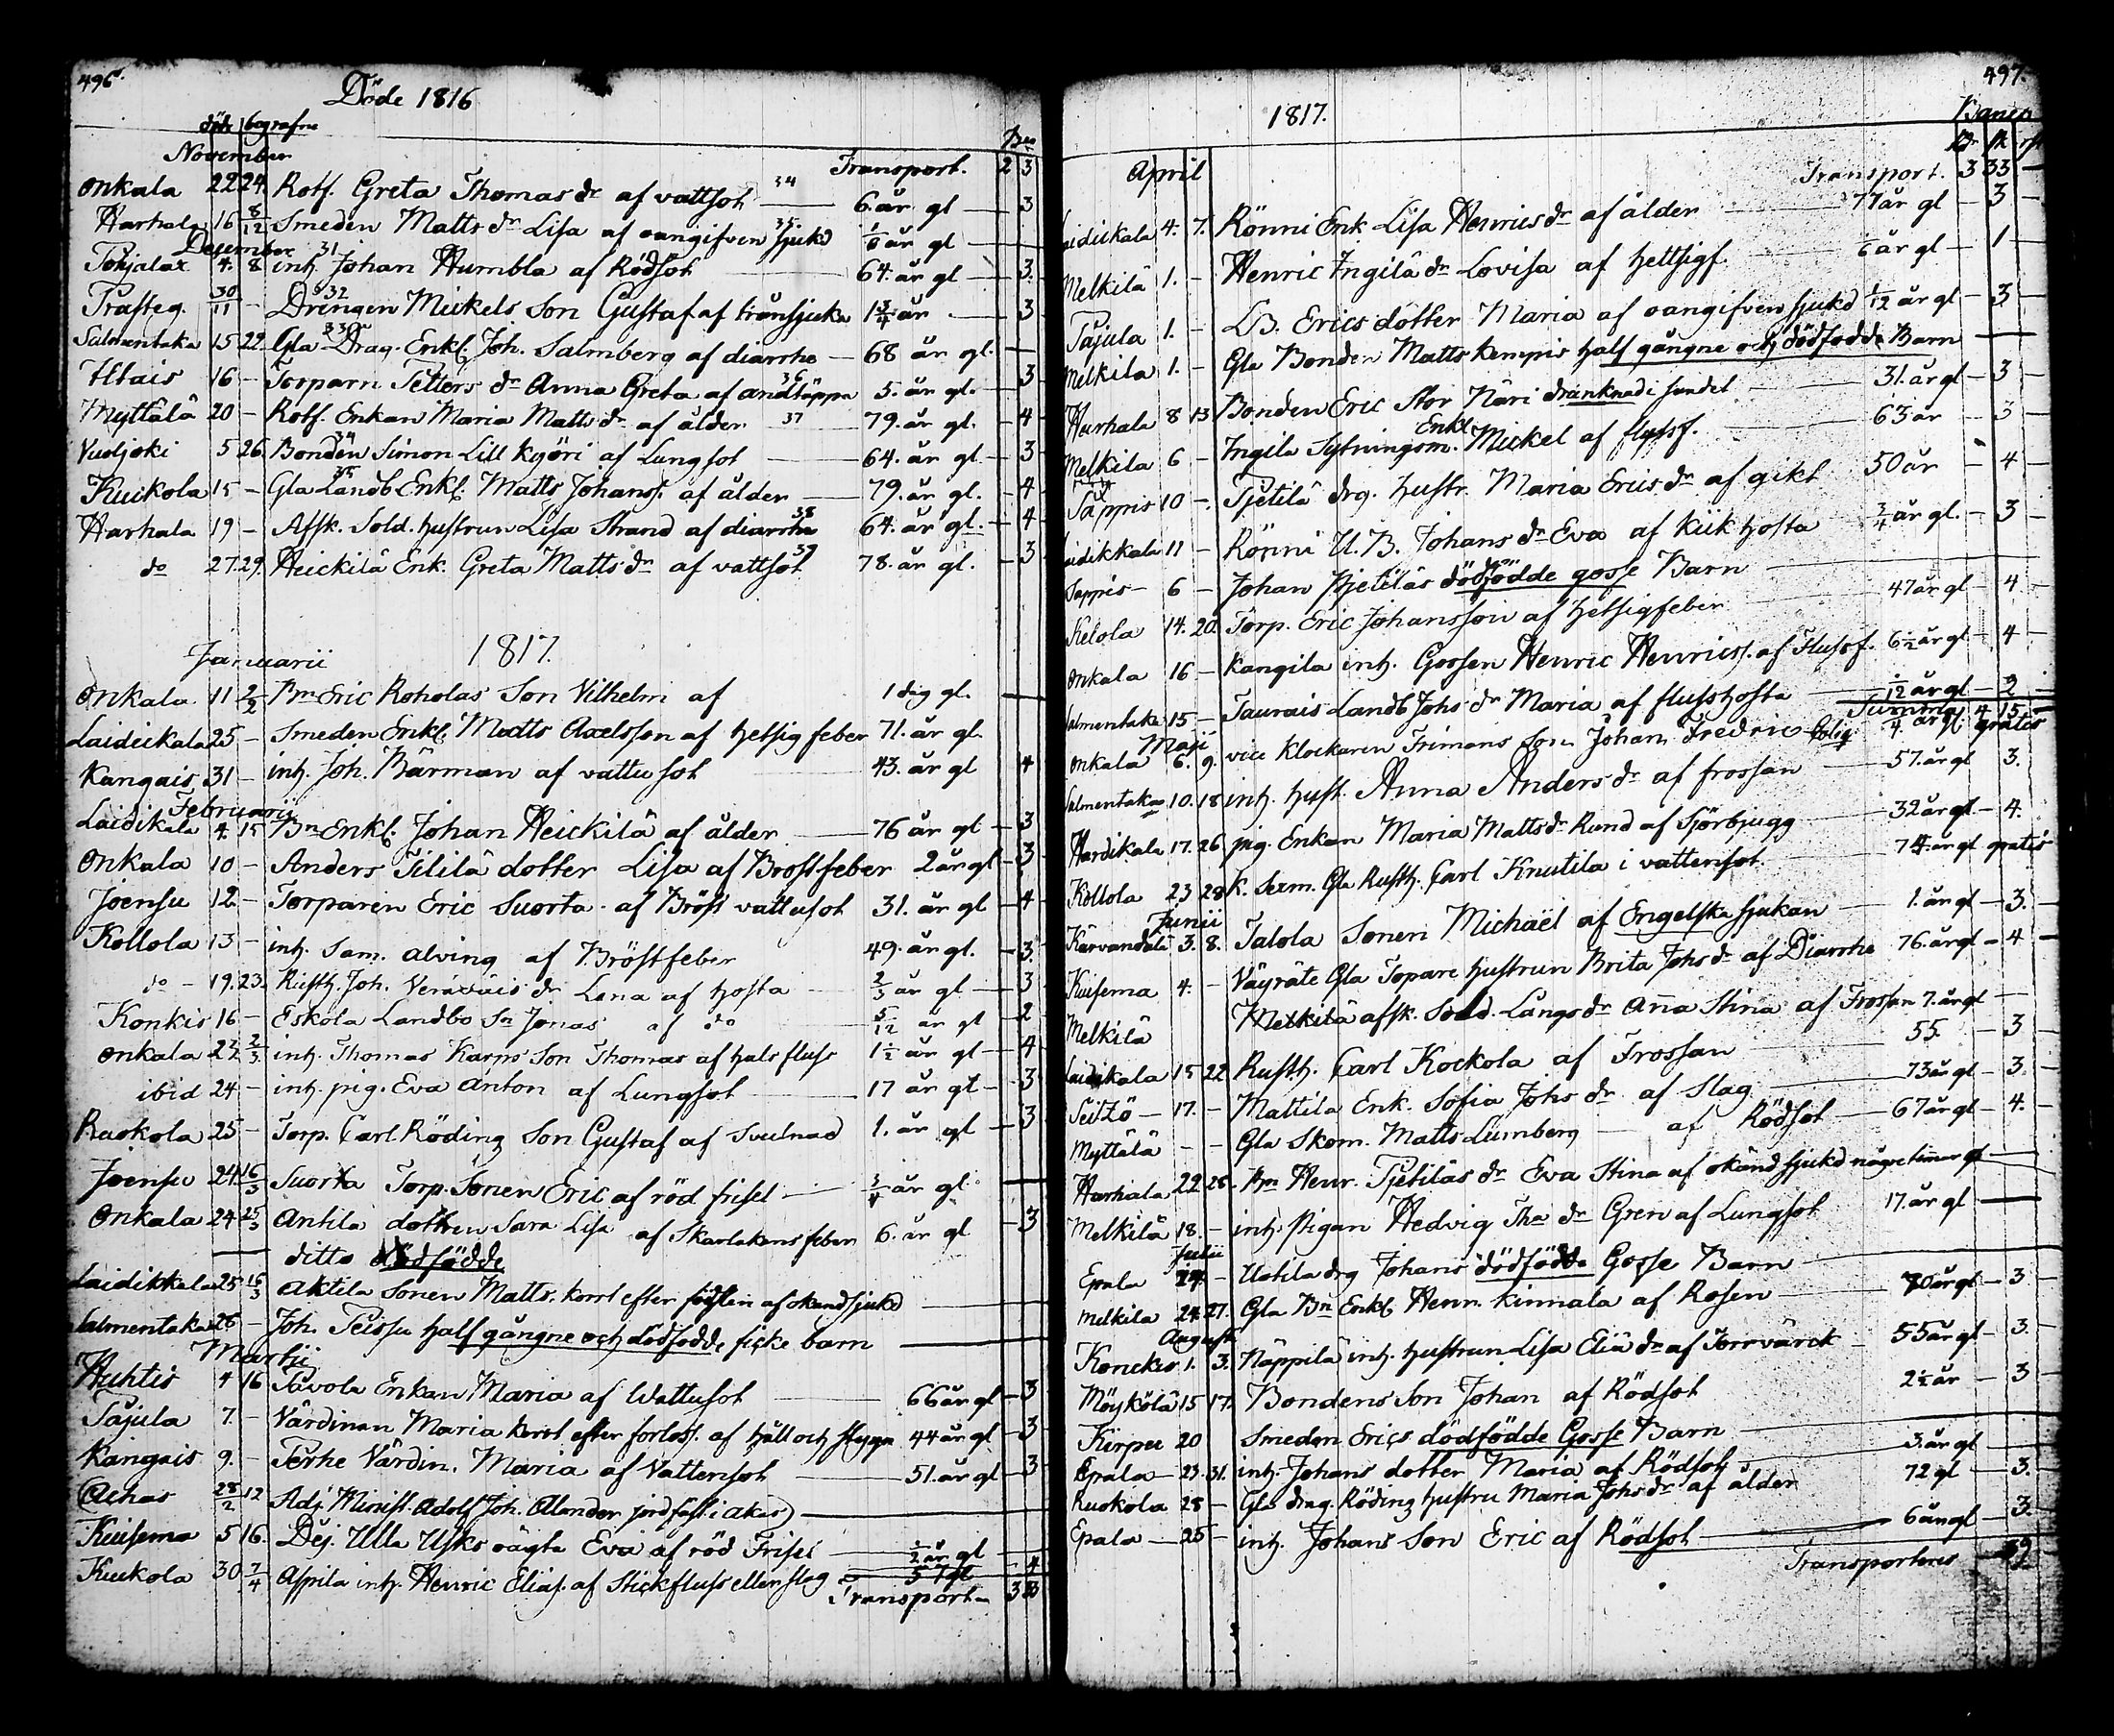 496.
Döde 1816
död begrafne
November
Transport. 2 3
Onkala 22 24 Rotf. Greta Thomas dr af vattsot 34 6. år gl 3
Harhala 16 8/12 Smeden Matts dr Lisa af oangifven sjukd 35 år gl
December
4. 8 31 inh. Johan Humbla af Rödsot 64. år gl 3.
30/11 - 32 Drengen Mickels Son Gustaf af 1 3/4 år 3
Salmentaka 15 22 33 Gla Drag. Enkl. Joh. Salmberg af diarrhe 68 år gl.
Iltais 16 - Torparn Petters dr Anna Greta af andtäppa 36 5. år gl. 3
Myttälä 20 - Rotf. Enkan Maria Matts dr af ålder 37 79. år gl. 4
Vuoljoki 5 26 Bonden Simon Lill Kyöri af Lungsot 64. år gl 3
Kuckola 15 - Gla Landb. Enkl. Matts Johanss. af ålder 79. år gl. 4
Harhala 19 - Afsk. Sold. hustrun Lisa Strand af diarrhe 38 64. år gl. 4
do 27. 29. Heickilä Enk. Greta Matts dr af vattsot 39 78. år gl. 3
1817.
Januarii
Onkala 11 2/2 Bn Eric Roholas Son Vilhelm af 1 dag gl.
Laideikala 25 - Smeden Enkl. Matts Axelsson af hetsig feber 71. år gl.
Kangais 31 - inh. Joh. Bärman af vattusot 43. år gl 4
Februarii
Laidikala 4. 15 Bn Enkl. Johan Heickilä af ålder 76 år gl 3
Onkala 10 - Anders Tililä dotter Lisa af Bröstfeber 2 år gl 3
Joensu 12 - Torparen Eric Suorta af Bröst vattusot 31. år gl 4
Kollola 13 - inh. Sam. Alving af Bröstfeber 49. år gl. 3
do - 19. 23. Rusth. Joh. dr Lena af hosta 2/3 år gl 3
Konkis 16 - Eskola Landbo Sn Jonas af do 5/12 år gl 2
Onkala 2/3 inh. Thomas Karps Son Thomas af hals fluss 1 1/2 år gl 4
ibid 24 - inh. pig. Eva Anton af Lungsot 17 år gl 3
Ruokola 25 - Torp. Carl Röding Son Gustaf af Svulnad 1. år gl 3
Joensu 24 16/3 Suorta Torp. Sonen Eric af röd frisel 3/4 år gl
Onkala 24 25/3 Antila dottren Sara Lisa af Skarlakensfeber 6. år gl 3
ditto dödfödde
Laidikkala 25 16/3 Aktila Sonen Matts, kort efter födslen af okänd sjukd
Salmentaka 26 - Joh. Peissu half gångne och dödfodde ficke barn
Martii
Huhtis 4 16 Pavola Enkan Maria af Wattusot 66 år gl 3
Pajula 7. - Värdinan Maria kort efter forloss. af håll och stygn 44 år gl 3
Kangais 9. - Perhe Värdin. Maria af Vattensot 51. år gl 3
(Achas 28/2 12 Adj. Minist. Adolf Joh. Alander jordfäst i Akas)
Kuisema 5 16. Dej. Ulla Usks oägta Eva af röd Frisel 1/2 år gl
Kuckola 30 7/4 Assila inh. Henric Elias. af Stickfluss eller slag 57 gl 4
Transport 3 33
497.
1817.
April
Transport. 3 33 -
Laidickala 4. 7. Rönni Enk. Lisa Henrics dr af ålder 77 år gl 3
Melkilä 1. - Henric Ingilä dr Lovisa af hettsigf. år gl 1
Pajula 1. - LB. Erics dotter Maria af oangifven sjukd 1/12 år gl 3
Melkila 1. - Gla Bonden Matts Kempis half gångne och dödfödde Barn
Harhala 8 13 Bonden Eric Stor Näri dränknad i sundet 31. år gl 3
Melkila 6 - Ingila Sytningsm. Enkl Mickel af flyssf. 63 år 3
Sappis 10 - Pjetilä drg. hustr. Maria Erics dr af gikt 50 år 4
Laidikkala 11 - Rönni U.B. Johans dr Eva af kikhosta 3/4 år gl. 3
Sappis 6 - Johan Pjetiläs dödfödde gosse Barn
Ketola 14. 20. Torp. Eric Johansson af hetsigfeber 47 år gl 4
Onkala 16 - Kangila inh. Gossen Henric Henricss. af Flussf. 6 1/2 år gl 4
Salmentaka 15 - Taurais Landb Johs dr Maria af flusshosta 1/12 år gl 2
Summa 4 15
Maji
Onkala 6. 9. vice Klockaren Frimans Son Johan Fredric Colig 4. år gl. gratis
Salmentaka 10. 18 inh. hust. Anna Anders dr af frossan 57. år gl 3.
Hardikala 17. 26 pig. Enkan Maria Matts dr Rund af Sjörbjugg 32 år gl 4.
Kollola 23 28 K. Gla Rusth. Carl Knutila i vattensot 74. år gl gratis
Junii
Kärvandelä 3. 8. Talola Sonen Michaël af Engelska sjukan 1. år gl 3.
Kuisema 4. - Väyräte Gla Topare hustrun Brita Johs dr af Diarrhe 76. år gl 4
Melkilä Melkilä afsk. Sold. Längs dr Anna Stina af Frossan 7. år gl
Laidikala 15 22 Rusth. Carl Kockola af Frossan 55. 3
17. - Mattila Enk. Sofia Johs dr af Slag 73 år gl 3.
Myttälä - - Gla Skom. Matts Lumberg af Rödsot 67 år gl 4.
Harhala 22 28. Bn Henr. Pjetiläs dr Eva Stina af okänd sjukd några timar gl
Melkilä 18. - inh. Pigan Hedvig Tho dr Gren af Lungsot 17. år gl
Julii
Epala 24 - Uotila drg Johans dödfödde Gosse Barn
Melkila 24. 27. Gla Bn Enkl Henr. Kinnala af Rosen 70 år gl 3
August
Konckis 1. 3. Näppilä inh. hustrun Lisa Eliä dr af Torrvärck 55 år gl 3.
Möykölä 15 17. Bondens Son Johan af Rödsot 2 1/2 år 3
Kirpu 20 Smeden Erics dödfödde Gosse Barn
Epala 23. 31. inh. Johans dotter Maria af Rödsot 3. år gl
Ruokola 28 - Gla drag. Röding hustru Maria Johs dr af ålder 72 gl 3.
Epala 25 - inh. Johans Son Eric af Rödsot 6 år gl 3.
Transporteres